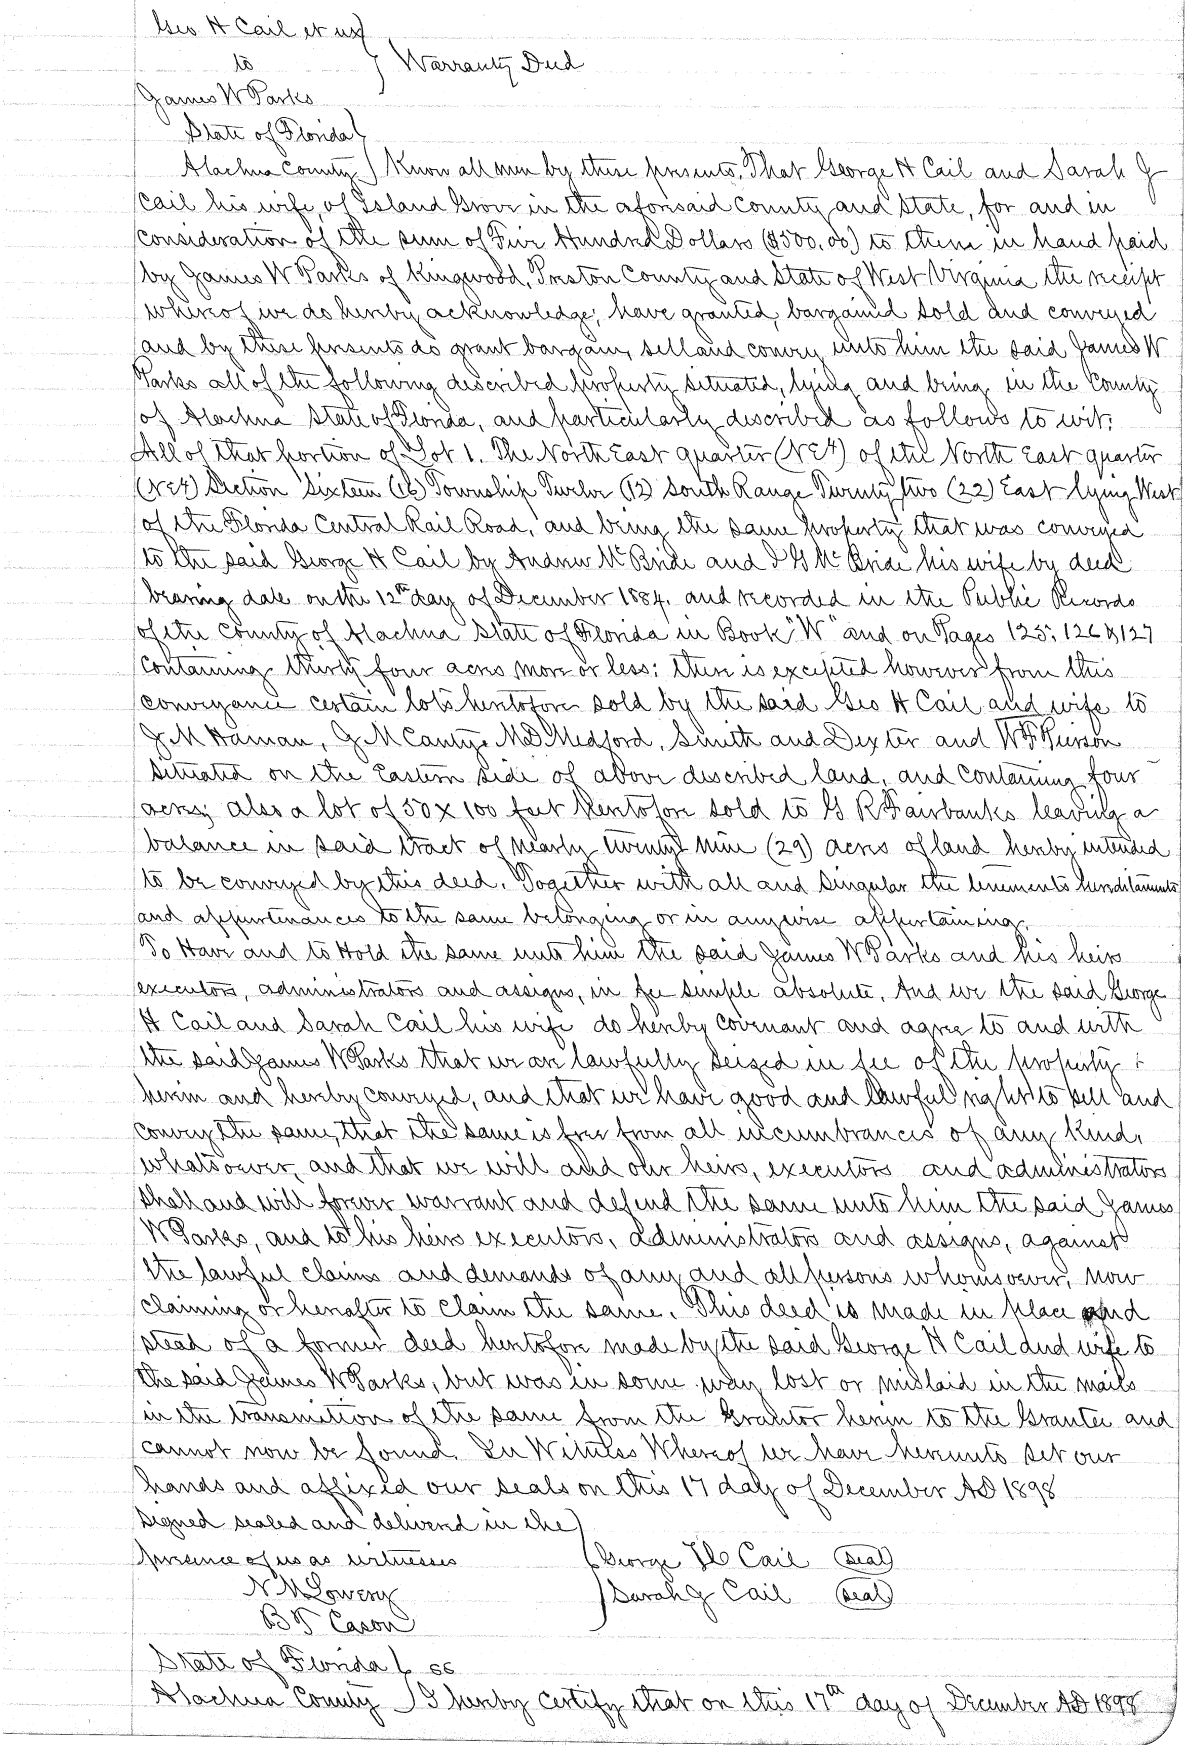 Geo H Cail et ux
to
Warranty Deed
James W Parks
State of Florida
Alachua County Know all men by these presents, That George H Cail and Sarah J
Cail his wife, of Island Grove in the aforesaid County and State, for and in
consideration of the sum of Five Hundred Dollars ($500.00) to them in hand paid
by James W Parks of Kingwood, Preston County and State of West Virginia the receipt
whereof we do hereby acknowledge, have granted, bargained sold and conveyed
and by these presents do grant bargain, sell and convey unto him the said James W
Parks all of the following described property situated, lying and being in the County
of Alachua State of Florida, and particularly described as follows to wit:
All of that portion of Lot 1. The North East quarter (NE4) of the North East quarter
(NE4) Section Sixteen (16) Township Twelve (12) South Range Twenty two (22) East lying West
of the Florida Central Rail Road, and being the same property that was conveyed
to the said George H Cail by Andrew McBride and I G McBride his wife by deed
bearing date on the 12th day of December 1884, and recorded in the Public Records
of the County of Alachua State of Florida in Book "W" and on Pages 125, 126 & 127
containing thirty four acres more or less; there is excepted however from this
conveyance certain lots heretofore sold by the said Geo H Cail and wife to
J M Haman, J M Canty, M D Medford, Smith and Dexter and W F Pierson
situated on the Eastern side of above described land, and containing four
acres; also a lot of 50 x 100 feet heretofore sold to G R Fairbanks leaving a
balance in said tract of nearly twenty nine (29) acres of land hereby intended
to be conveyed by this deed. Together with all and singular the tenements hereditaments
and appurtenances to the same belonging or in anywise appertaining.
To Have and to Hold the same unto him the said James W Parks and his heirs
executors, administrators and assigns, in fee simple absolute. And we the said George
H Cail and Sarah Cail his wife do hereby covenant and agree to and with
the said James W Parks that we are lawfully seized in fee of the property
herein and hereby conveyed, and that we have good and lawful right to sell and
convey the same, that the same is free from all incumbrances of any kind,
whatsoever, and that we will and our heirs, executors and administrators
shall and will forever warrant and defend the same unto him the said James
W Parks, and to his heirs executors, administrators and assigns, against
the lawful claims and demands of any and all persons whomsoever, now
claiming or hereafter to claim the same. This deed is made in place and
stead of a former deed heretofore made by the said George H Cail and wife to
the said James W Parks, but was in some way lost or mislaid in the mails
in the transmition of the same from the Grantor herein to the Grantee and
cannot now be found. In Witness Whereof we have hereunto set our
hands and affixed our seals on this 17 day of December AD 1898
Signed sealed and delivered in the
presence of us as witnesses George H Cail (seal)
N M Lowery Sarah J Cail (seal)
B T Cason
State of Florida ss
Alachua County I hereby certify that on this 17th day of December AD 1898